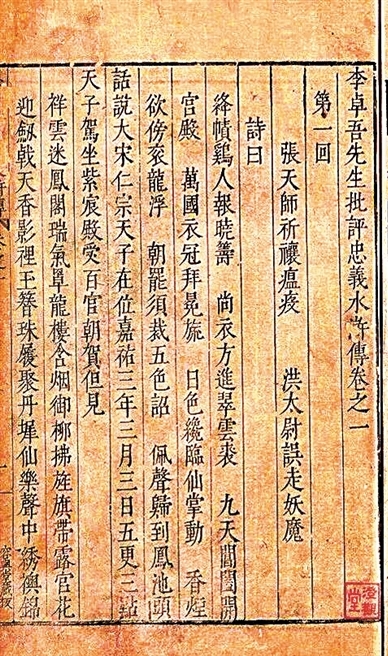 李卓吾先生批評忠義水滸傳卷之一
第一回
張天師祈禳瘟疫　洪太尉誤走妖魔
詩曰
絳幘鷄人報曉籌　尚衣方進翠雲裘　九天閶闔開
宮殿　萬國衣冠拜冕旒　日色纔臨仙掌動　香煙
欲傍衮龍浮　朝罷須裁五色詔　佩聲歸到鳳池頭
話說大宋仁宗天子在位嘉祐三年三月三日五更三點
天子駕坐紫宸殿受百官朝賀但見
祥雲迷鳳閣瑞氣罩龍樓含烟御柳拂旌旗帶露宮花
迎劔戟天香影裡玉簪珠履聚丹墀仙樂聲中綉襖錦